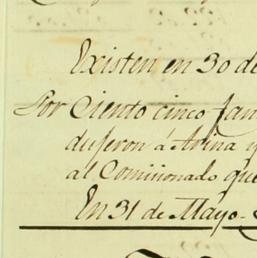 Existen en 30 de
Por Ciento cinco fan
dujeron á Arina y
al Comisionado que
En 31 de Mayo